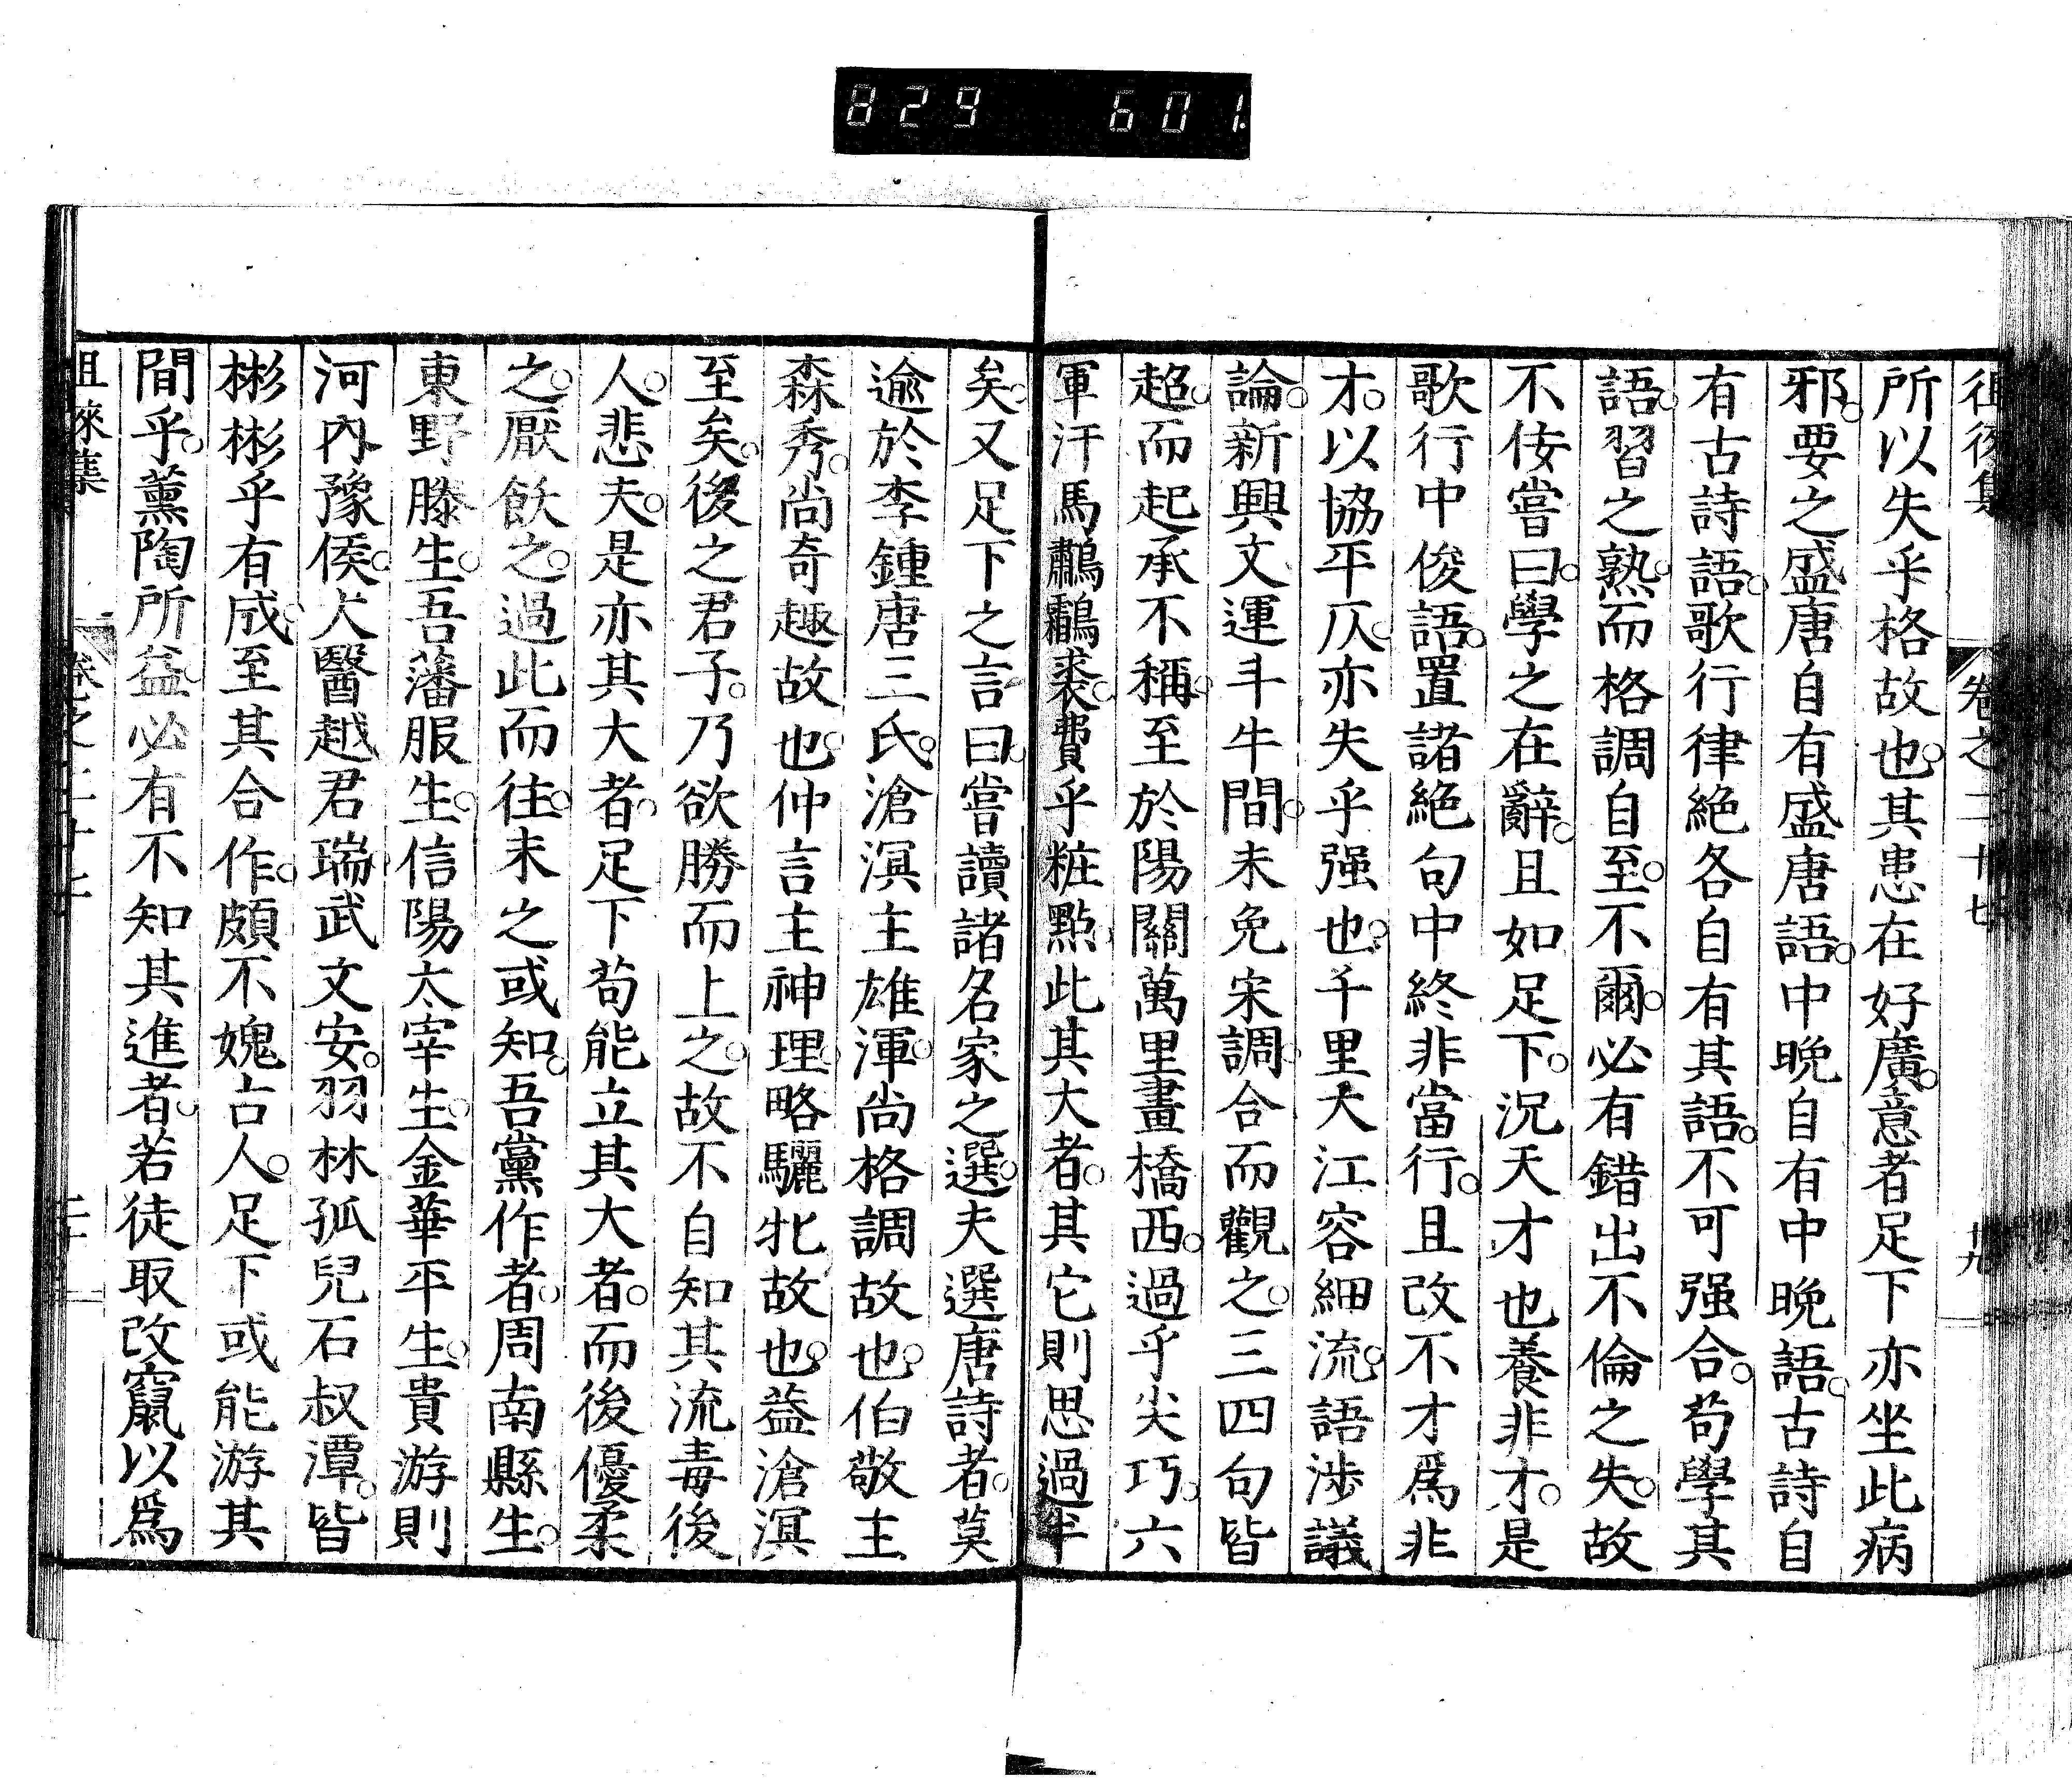 829 601
徂徠集 卷之二十七 十九
所以失乎格故也其患在好廣意者足下亦坐此病
邪要之盛唐自有盛唐語中晚自有中晚語古詩自
有古詩語歌行律絕各自有其語不可强合苟學其
語習之熟而格調自至不爾必有錯出不倫之失故
不佞嘗曰學之在辭且如足下況天才也養非才是
歌行中俊語置諸絕句中終非當行且改不才爲非
才以協平仄亦失乎强也千里大江容細流語涉議
論新興文運斗牛間未免宋調合而觀之三四句皆
趙而起承不稱至於陽關萬里畫橋西過乎尖巧六
軍汗馬鷫鸘裘費乎粧點此其大者其它則思過半
矣又足下之言曰嘗讀諸名家之選夫選唐詩者莫
逾於李鍾唐三氏滄溟主雄渾尚格調故也伯敬主
森秀尚奇趣故也仲言主神理略驪牝故也益滄溟
至矣後之君子乃欲勝而上之故不自知其流毒後
人悲夫是亦其大者足下苟能立其大者而後優柔
之厭飫之過此而往未之或知吾黨作者周南縣生
東野滕生吾藩服生信陽太宰生金華平生貴游則
河內豫侯犬醫越君瑞武文安羽林孤兒石叔潭皆
彬彬乎有成至其合作頗不媿古人足下或能游其
間乎薰陶所益必有不知其進者若徒取改竄以爲
徂徠集 卷之二十七 二十